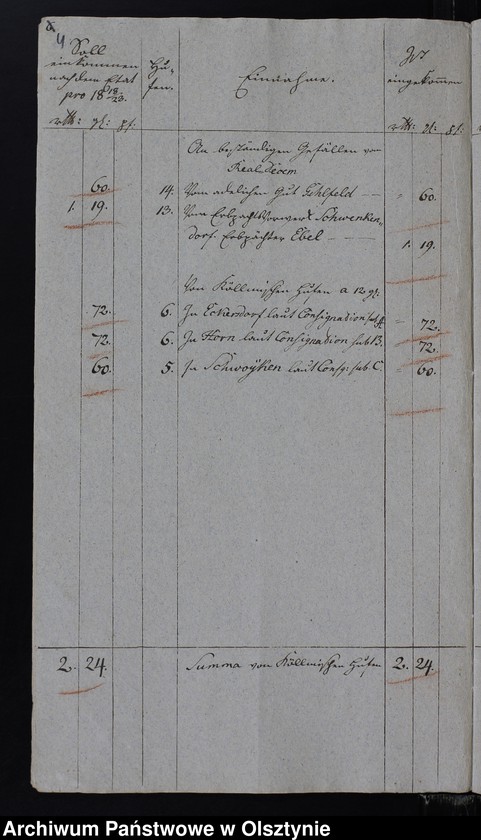 4
Soll
einkommen
nach dem Etat
pro 18 18/23.
rtl: gl: pf:
Hu-
fen.
Einnahme.
Ist
eingekommen
rtl: gl: pf:
An beständigen Gefällen vom
Real Decem
60. 14. Vom adelichen Gut — 60.
1. 19. 13. Vom Erbpachtsvorwerk Schwenken-
dorf. Erbpächter Ebel — 1. 19.
Von Köllmischen Hufen a 12 gl:
72. 6. In Eckersdorf laut Consignation sub A — 72.
72. 6. In Horn laut Consignation sub B. 72.
60. 5. In Schwoyken laut Consig: sub C. 60.
2. 24. Summa von Köllmischen Hufen 2. 24.
Archiwum Państwowe w Olsztynie